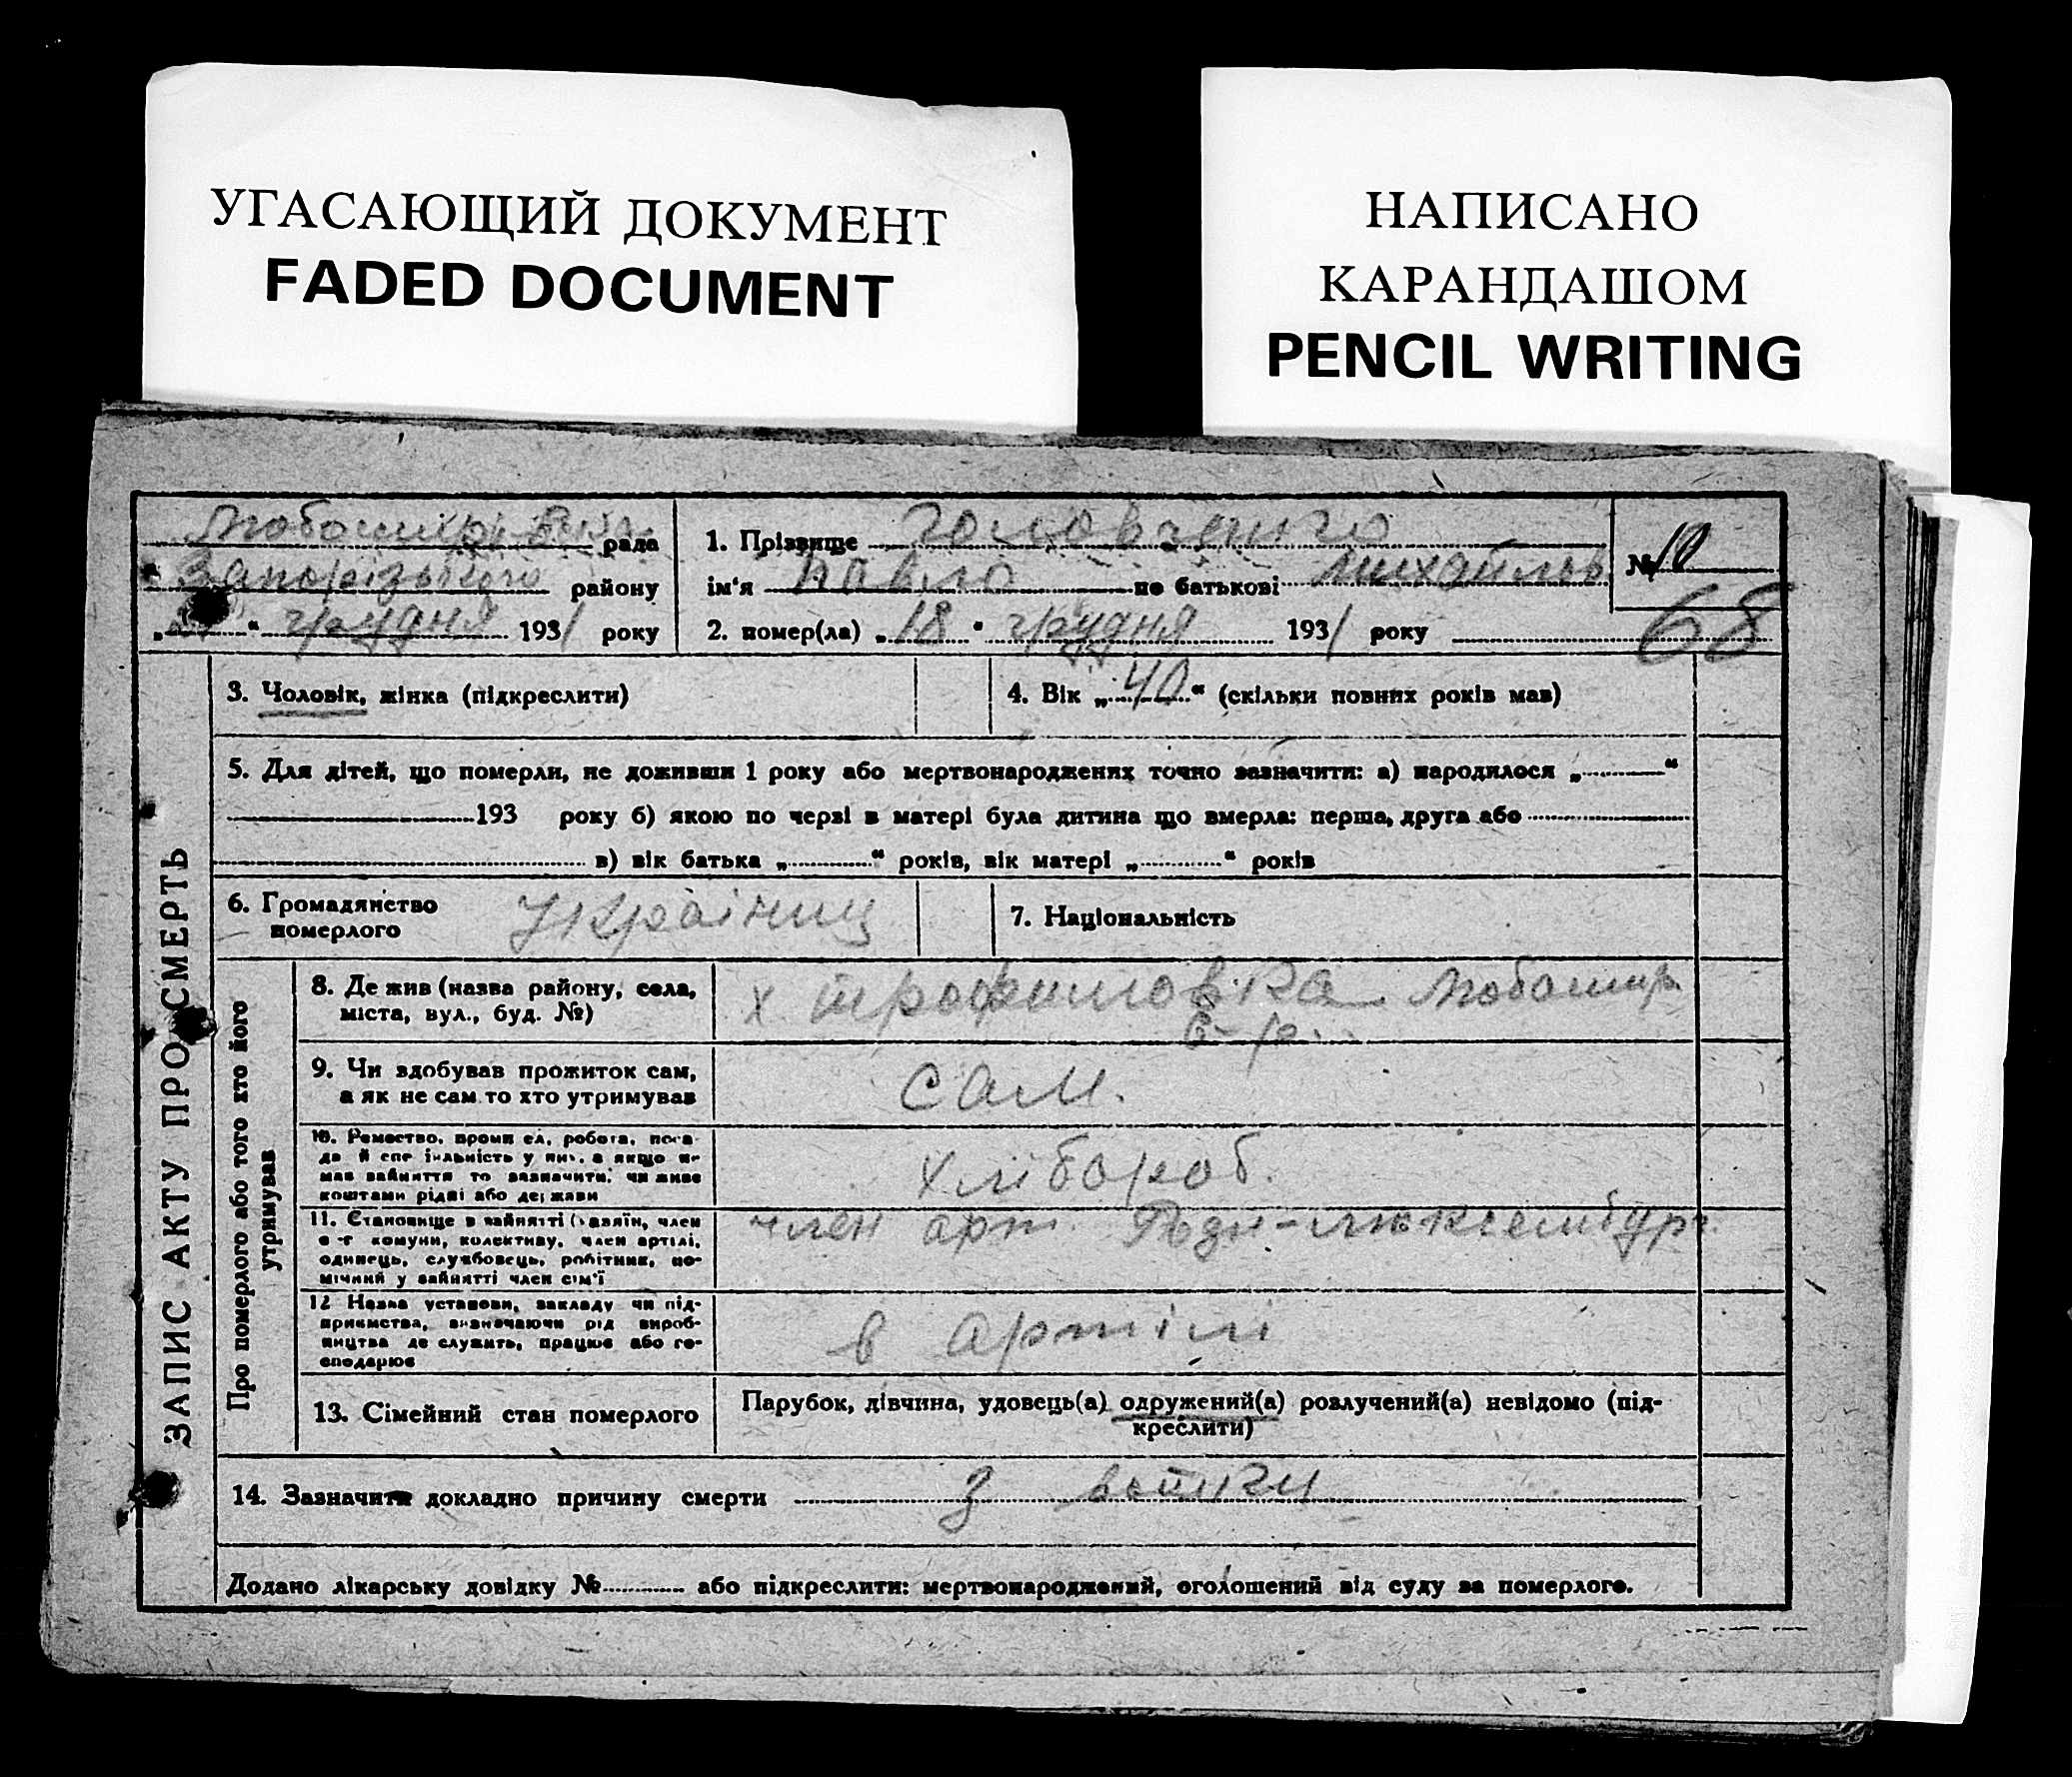 УГАСАЮЩИЙ ДОКУМЕНТ
FADED DOCUMENT
НАПИСАНО
КАРАНДАШОМ
PENCIL WRITING
рада
Запорізького району
" грудня 1931 року
1. Прізвище Головченко
ім'я Павло по батькові Михайлов
2. помер(ла) „18" грудня 1931 року
№ 10
68
ЗАПИС АКТУ ПРО СМЕРТЬ
3. Чоловік, жінка (підкреслити)
4. Вік „40" (скільки повних років мав)
5. Для дітей, що померли, не доживши 1 року або мертвонароджених точно зазначити: а) народилося „ "
193 року б) якою по черзі в матері була дитина що вмерла: перша, друга або
в) вік батька „ " років, вік матері „ " років
6. Громадянство
померлого
Українец
7. Національність
Про померлого або того хто його
утримував
8. Де жив (назва району, села,
міста, вул., буд. №)
х трофимовка Любомир
с-р.
9. Чи здобував прожиток сам,
а як не сам то хто утримував
сам.
10. Ремество, промисел, робота, поса-
да й спеціяльність у них, а якщо не
мав зайняття то зазначити, чи живе
коштами рідні або держави
хлібороб.
11. Становище в зайнятті (хазяїн, член
с-г комуни, колективу, член артілі,
одинець, службовець, робітник, по-
мічний у зайнятті член сім'ї
член арт. Рози-люксембург.
12 Назва установи, закладу чи під-
приємства, визначаючи рід вироб-
ництва де служить, працює або го-
сподарює
в артілі
13. Сімейний стан померлого
Парубок, дівчина, удовець(а) одружений(а) розлучений(а) невідомо (під-
креслити)
14. Зазначити докладно причину смерти з
Додано лікарську довідку № або підкреслити: мертвонароджений, оголошений від суду за померлого.